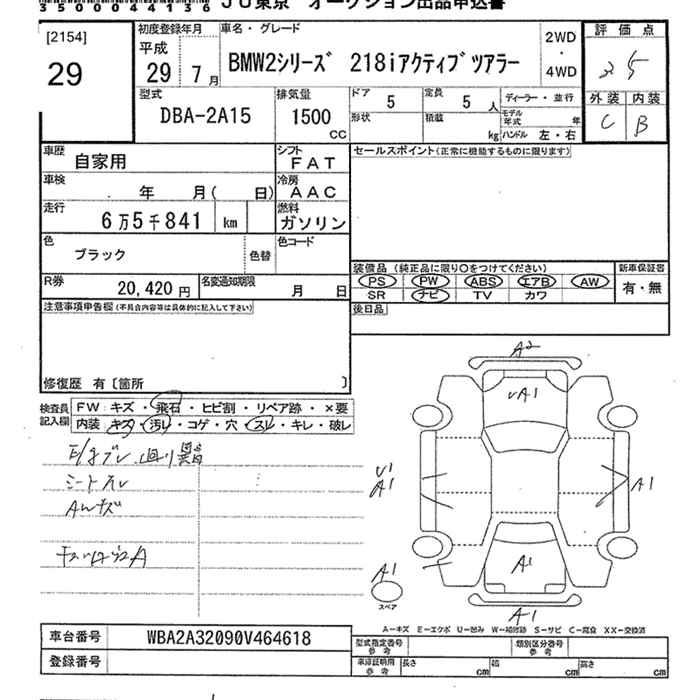 3500044136 JU東京 オークション出品申込書
[2154]
29
初度登録年月
平成
29 7月
車名・グレード
BMW2シリーズ 218iアクティブツアラー
2WD
・
4WD
評価点
外装 内装
C B
型式
DBA-2A15
排気量
1500
CC
ドア 5
定員 5 人
形状
積載 kg
ディーラー・並行
モデル年式 年
ハンドル 左・右
車歴 自家用
シフト FAT
セールスポイント(正常に機能するものに限ります)
車検 年 月( 日)
冷房 AAC
走行 6万5千841 km
燃料 ガソリン
色 ブラック
色替
色コード
R券 20,420円
名変通知期限 月 日
装備品(純正品に限り○をつけてください)
PS PW ABS エアB AW
SR ナビ TV カワ
新車保証書
有・無
後日品
注意事項申告欄(不具合内容等は具体的に記入して下さい)
修復歴 有〔箇所 〕
検査員記入欄
FW:キズ・飛石・ヒビ割・リペア跡・×要
内装:キズ・汚レ・コゲ・穴・スレ・キレ・破レ
シートスレ
AWキズ
A2
A1
A1
A1
A1
A1
A1
スペア
A-キズ E-エクボ U-凹み W-補修跡 S-サビ C-腐食 XX-交換済
車台番号 WBA2A32090V464618
登録番号
型式指定番号参考
類別区分番号参考
車庫証明用参考
長さ cm 幅 cm 高さ cm